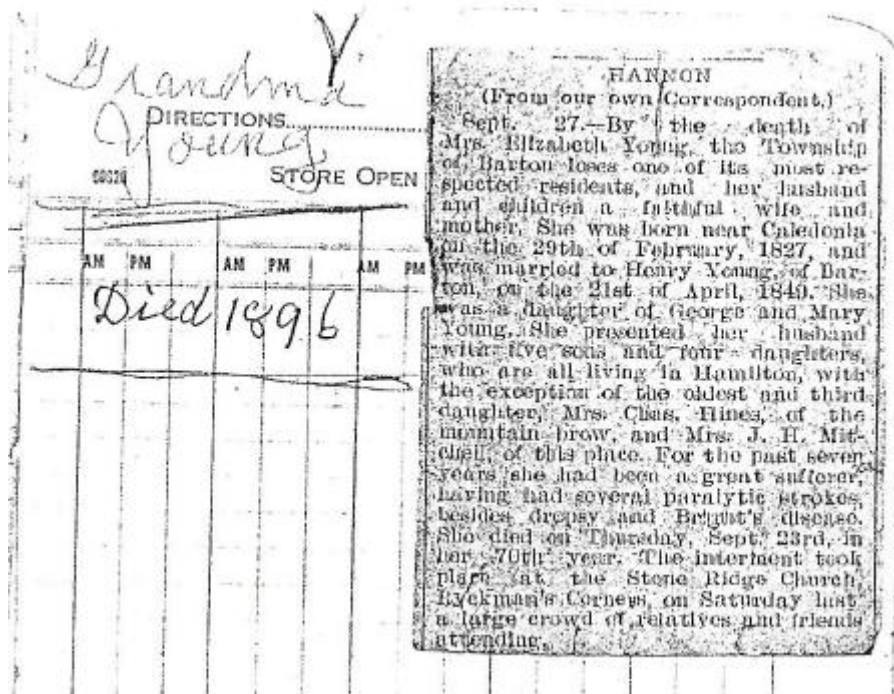 Grandma Y
DIRECTIONS
Young
STORE OPEN
AM PM AM PM AM PM
Died 1896
HANNON
(From our own Correspondent.)
Sept. 27.—By the death of
Mrs. Elizabeth Young the Township
of Barton loses one of its most re-
spected residents, and her husband
and children a faithful wife and
mother. She was born near Caledonia
on the 29th of February, 1827, and
was married to Henry Young, of Bar-
ton, on the 21st of April, 1849. She
was a daughter of George and Mary
Young. She presented her husband
with five sons and four daughters,
who are all living in Hamilton, with
the exception of the oldest and third
daughter, Mrs. Chas. Hines, of the
mountain brow, and Mrs. J. H. Mit-
chell, of this place. For the past seven
years she had been a great sufferer,
having had several paralytic strokes,
besides dropsy and Bright's disease.
She died on Thursday, Sept. 23rd, in
her 70th year. The interment took
place at the Stone Ridge Church,
Ryckman's Corners, on Saturday last
a large crowd of relatives and friends
attending.